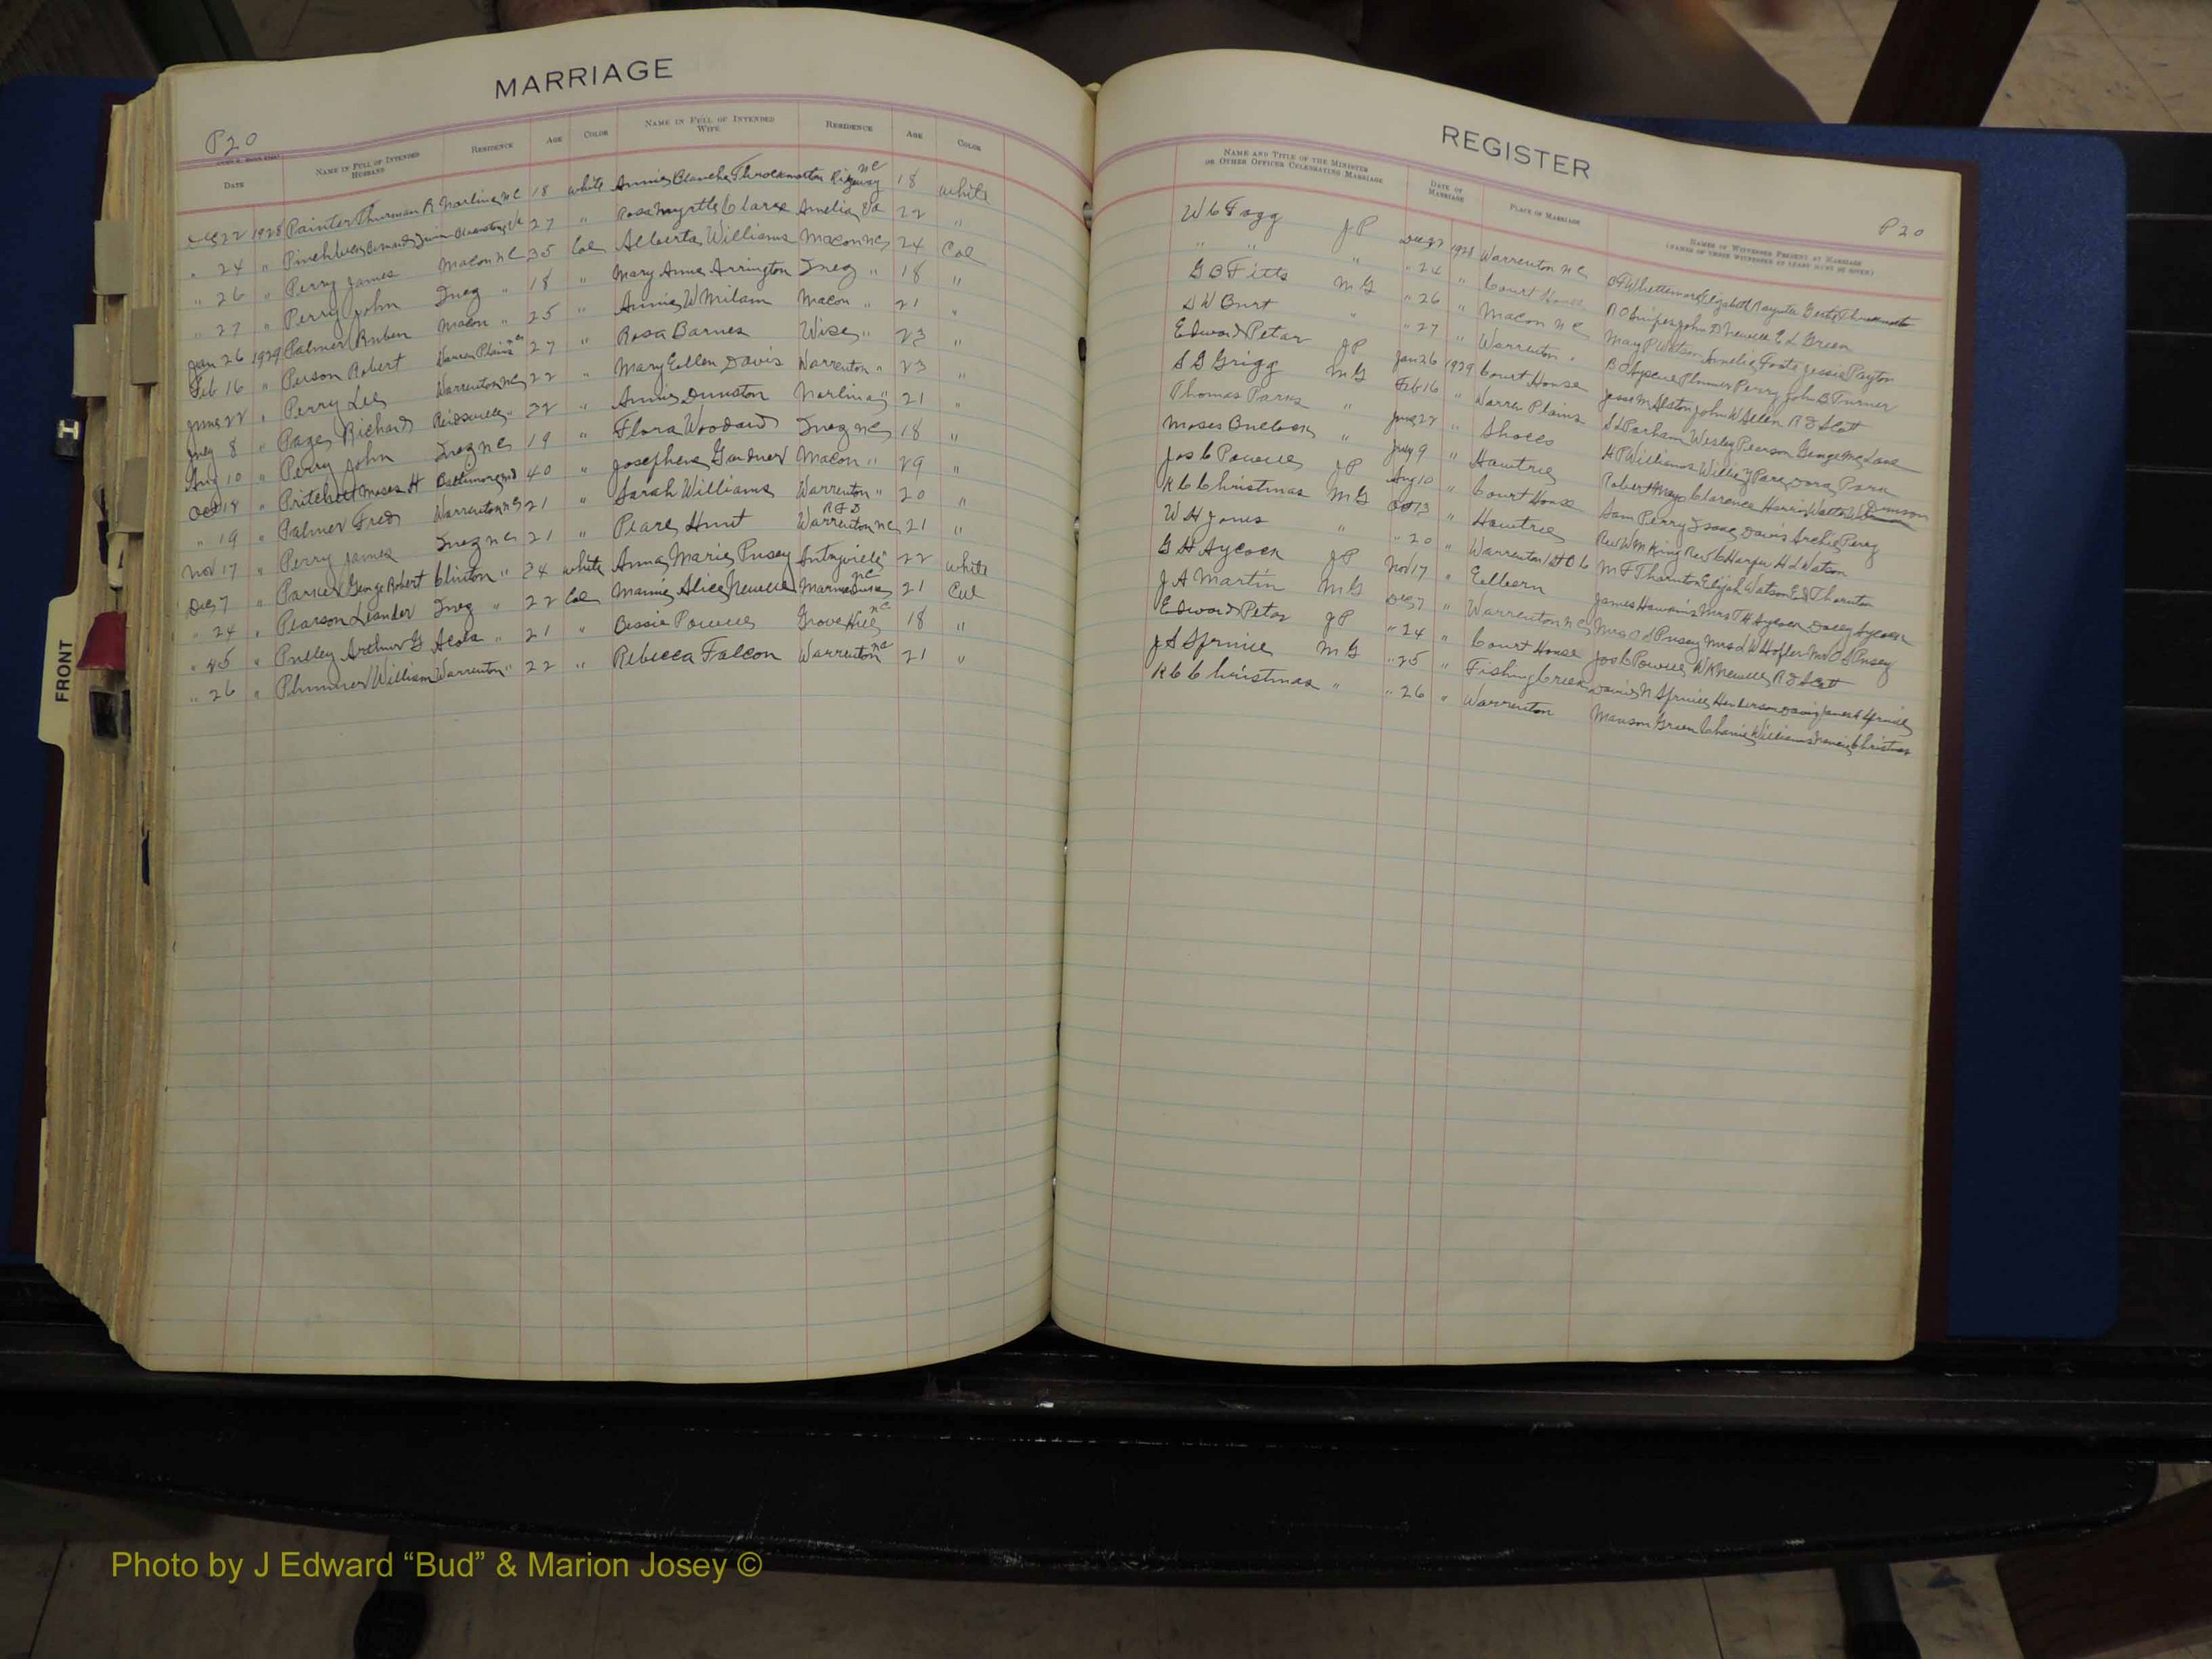 MARRIAGE
P20
DATE NAME IN FULL OF INTENDED HUSBAND RESIDENCE AGE COLOR NAME IN FULL OF INTENDED WIFE RESIDENCE AGE COLOR
22 1928 Painter Thurman R Norlina NC 18 white Annie Blanche Throckmorton Ridgeway NC 18 white
" 24 " 27 " Rosa Myrtle Clark Amelia Va 22 "
" 26 " Perry James Macon NC 35 Col Alberta Williams Macon NC 24 Col
" 27 " Perry John Inez " 18 " Mary Anna Arrington Inez " 18 "
Jan 26 1929 Palmer Ruben Macon " 25 " Annie W Milam Macon " 21 "
Feb 16 " Person Robert Warren Plains NC 27 " Rosa Barnes Wise " 23 "
June 22 " Perry Lee Warrenton NC 22 " Mary Ellen Davis Warrenton " 23 "
July 8 " Page Richard Reidsville " 32 " Annie Dunston Norlina " 21 "
Aug 10 " Perry John Inez NC 19 " Flora Woodard Inez NC 18 "
Oct 18 " Pritchett Moses H Baltimore Md 40 " Josephene Gardner Macon " 29 "
" 19 " Palmer Fred Warrenton NC 21 " Sarah Williams Warrenton " 20 "
Nov 17 " Perry James Inez NC 21 " Pearl Hunt Warrenton NC RFD 21 "
Dec 7 " Parker George Robert Clinton " 24 white Anna Marie Pusey 22 white
" 24 " Pearson Leander Inez " 22 Col Mamie Alice Newell Marmaduke NC 21 Col
" 25 " Pulley Arthur G " 21 " Bessie Powell Grove Hill NC 18 "
" 26 " Plummer William Warrenton " 22 " Rebecca Falcon Warrenton NC 21 "
REGISTER
P20
NAME AND TITLE OF THE MINISTER OR OTHER OFFICER CELEBRATING MARRIAGE DATE OF MARRIAGE PLACE OF MARRIAGE NAMES OF WITNESSES PRESENT AT MARRIAGE (NAMES OF THREE WITNESSES AT LEAST MUST BE GIVEN)
W C Fagg JP Dec 22 1928 Warrenton NC
" " " " 24 " Court House John D Newell E L Green
G B Fitts M G " 26 " Macon NC May P Watson Amelia Foote Jessie Payton
S W Burt " " 27 " Warrenton " Plummer Perry John B Turner
Edward Petar JP Jan 26 1929 Court House John W Allen R D Scott
S G Grigg M G Feb 16 " Warren Plains S L Parham Wesley Pearson George McLane
Thomas Parks " June 22 " Shocco H P Williams
Moses Bullock " July 9 " Hawtree Robert Mayo Clarence Harris
Jos C Powell JP Aug 10 " Court House Sam Perry Isaac Davis Archie Perry
R C Christmas M G Oct 13 " Hawtree Rev W M King Rev C Harper H L Watson
W H Jones " " 20 " Warrenton M F Thornton Elijah Watson E S Thornton
G H Aycock JP Nov 17 " James Hawkins Mrs T H Aycock Dolly Aycock
J A Martin M G Dec 7 " Warrenton NC Mrs O S Pusey Mrs L W Hofler Mr O S Pusey
Edward Petar JP " 24 " Court House Jos C Powell W K Newell R D Scott
J S Spruill M G " 25 " Fishing Creek
R C Christmas " " 26 " Warrenton Manson Green
FRONT
H
Photo by J Edward “Bud” & Marion Josey ©